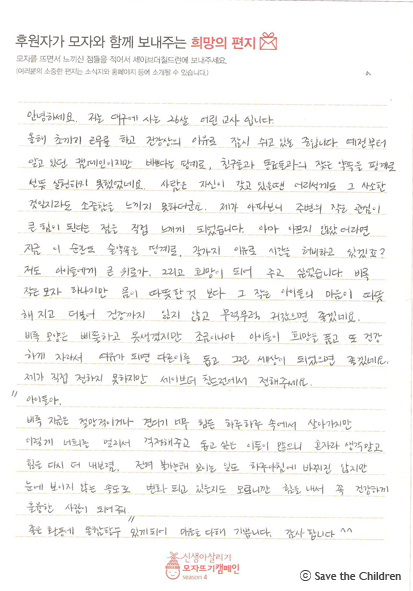 후원자가 모자와 함께 보내주는 희망의 편지
모자를 뜨면서 느끼신 점들을 적어서 세이브더칠드런에 보내주세요.
(여러분의 소중한 편지는 소식지와 홈페이지 등에 소개될 수 있습니다.)
안녕하세요. 저는 대구에 사는 26살 어린 교사 입니다
올해 초까지 근무를 하고 건강상의 이유로 잠시 쉬고 있는 중입니다. 예전부터
알고 있던 캠페인이지만 바쁘다는 핑계로, 친구들과 동료들과의 작은 약속을 핑계로
선뜻 실천하지 못했었네요. 사람은 자신이 갖고 있을땐 어리석게도 그 사소한
것일지라도 소중함을 느끼지 못하더군요. 제가 아파보니 주변의 작은 관심이
큰 힘이 된다는 점을 직접 느끼게 되었습니다. 아마 아프지 않았더라면
지금 이 순간도 술약속을 핑계로, 갖가지 이유로 시간을 허비하고 있겠죠?
저도 아이들에게 큰 위로가, 그리고 희망이 되어 주고 싶었습니다 비록
작은 모자 하나지만 몸이 따뜻한것 보다 그 작은 아이들의 마음이 따뜻
해지고 더불어 건강까지 잃지 않고 무럭무럭 커줬으면 좋겠네요.
비록 모양은 삐뚤하고 못생겼지만 조금이나마 아이들이 희망을 품고 또 건강
하게 자라서 여유가 되면 다른이를 돕고 그런 세상이 되었으면 좋겠네요.
제가 직접 전하지 못하지만 세이브더 칠드런에서 전해주세요.
"아이들아.
비록 지금은 절망적이거나 견디기 너무 힘든 하루하루 속에서 살아가지만
이렇게 너희를 멀리서 걱정해주고 돕고 싶은 이들이 많으니 혼자라 생각말고
힘을 다시 더 내보렴. 전혀 불가능해 보이는 일도 하루아침에 바뀌진 않지만
눈에 보이지 않는 속도로 변화 되고 있을지도 모르니깐 힘을 내서 꼭 건강하게
훌륭한 사람이 되어줘."
좋은 활동에 동참할수 있게되어 마음을 다해 기쁩니다. 감사 합니다 ^^
신생아살리기
모자뜨기캠페인
season 4
ⓒ Save the Children